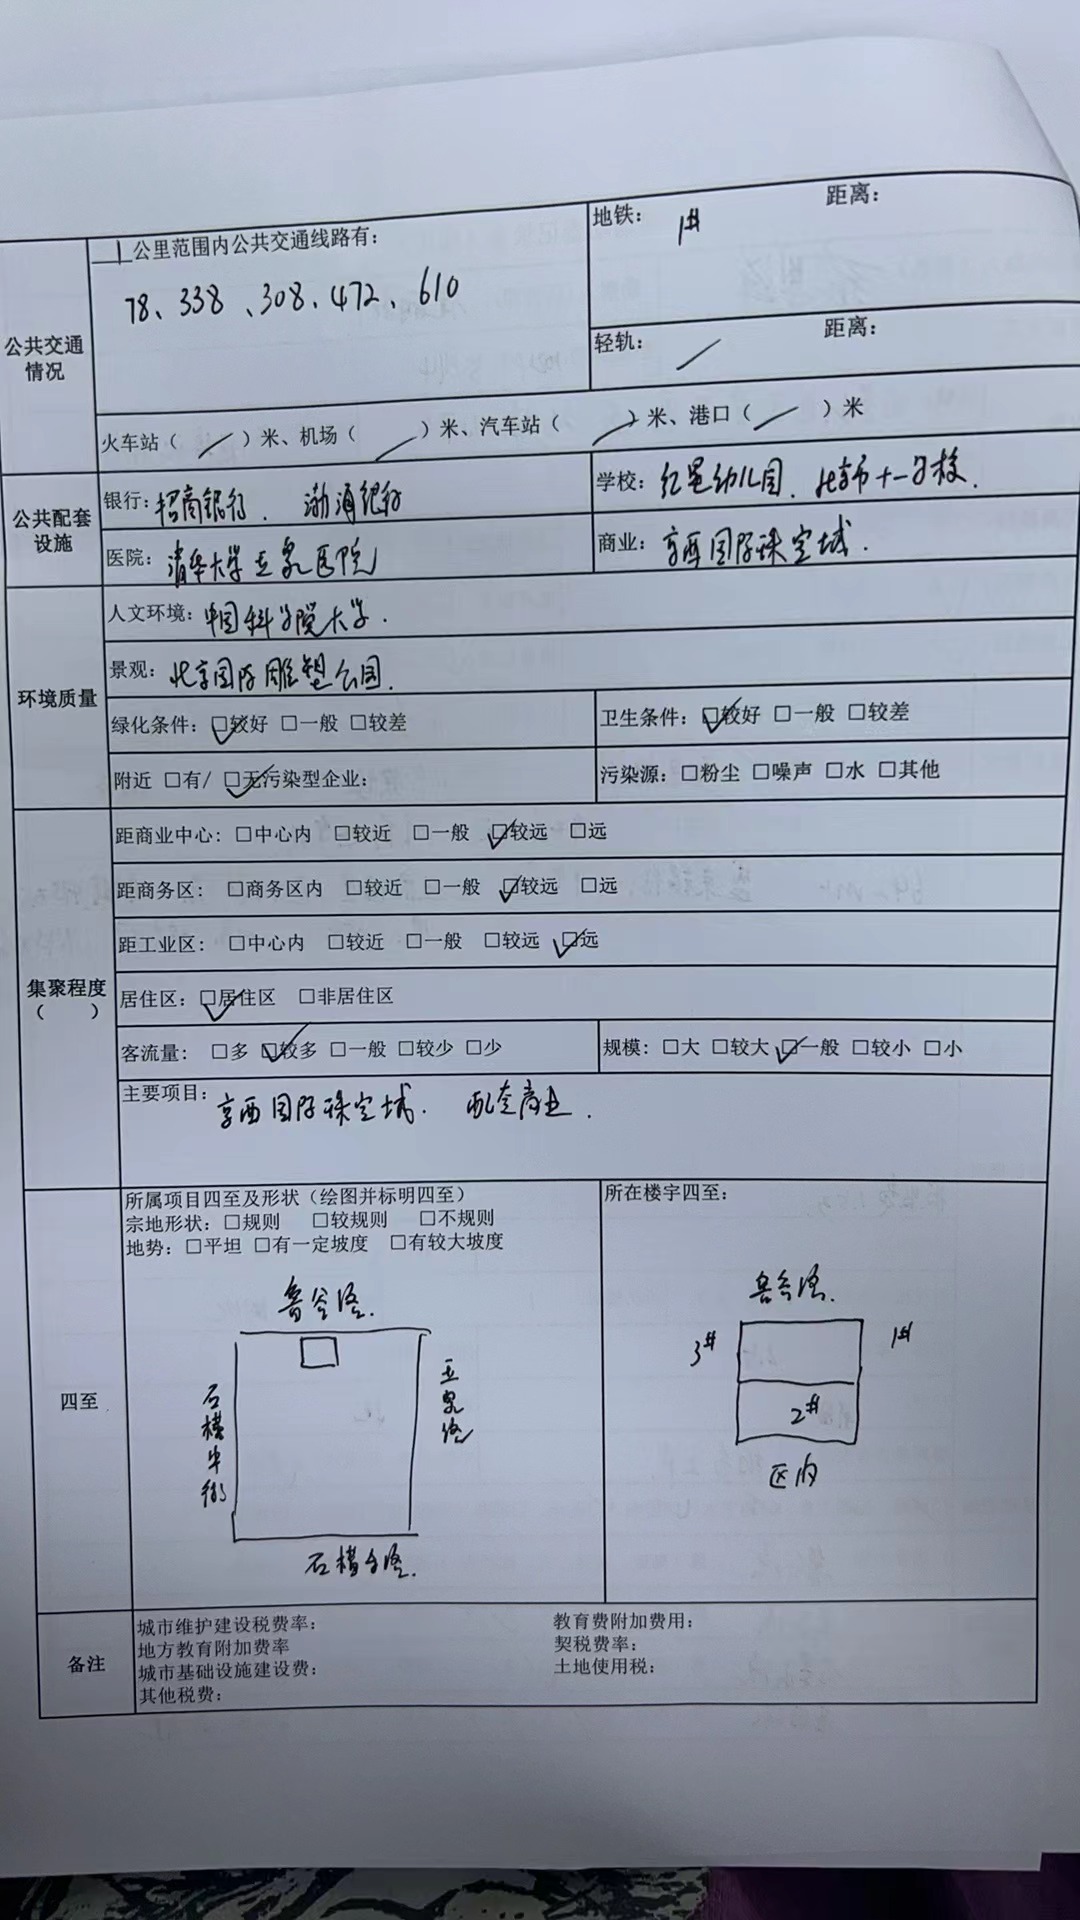 1公里范围内公共交通线路有：
78、338、308、472、610
地铁： 1# 距离：
轻轨： 距离：
公共交通
情况
火车站（ ）米、机场（ ）米、汽车站（ ）米、港口（ ）米
公共配套
设施
银行：招商银行、渤海银行
学校：红星幼儿园、北京市十一学校.
医院：清华大学玉泉医院
商业：京西国际珠宝城.
环境质量
人文环境：中国科学院大学.
景观：北京国际雕塑公园.
绿化条件：☑较好 □一般 □较差
卫生条件：☑较好 □一般 □较差
附近 □有/ ☑无污染型企业：
污染源：□粉尘 □噪声 □水 □其他
集聚程度
（ ）
距商业中心：□中心内 □较近 □一般 ☑较远 □远
距商务区：□商务区内 □较近 □一般 ☑较远 □远
距工业区：□中心内 □较近 □一般 □较远 ☑远
居住区：☑居住区 □非居住区
客流量：□多 ☑较多 □一般 □较少 □少
规模：□大 □较大 ☑一般 □较小 □小
主要项目：京西国际珠宝城. 配套商业.
四至
所属项目四至及形状（绘图并标明四至）
宗地形状：□规则 □较规则 □不规则
地势：□平坦 □有一定坡度 □有较大坡度
鲁谷路.
石槽中街
玉泉路
石槽南路.
所在楼宇四至：
鲁谷路.
3#
1#
2#
区内
备注
城市维护建设税费率：
教育费附加费用：
地方教育附加费率
契税费率：
城市基础设施建设费：
土地使用税：
其他税费：